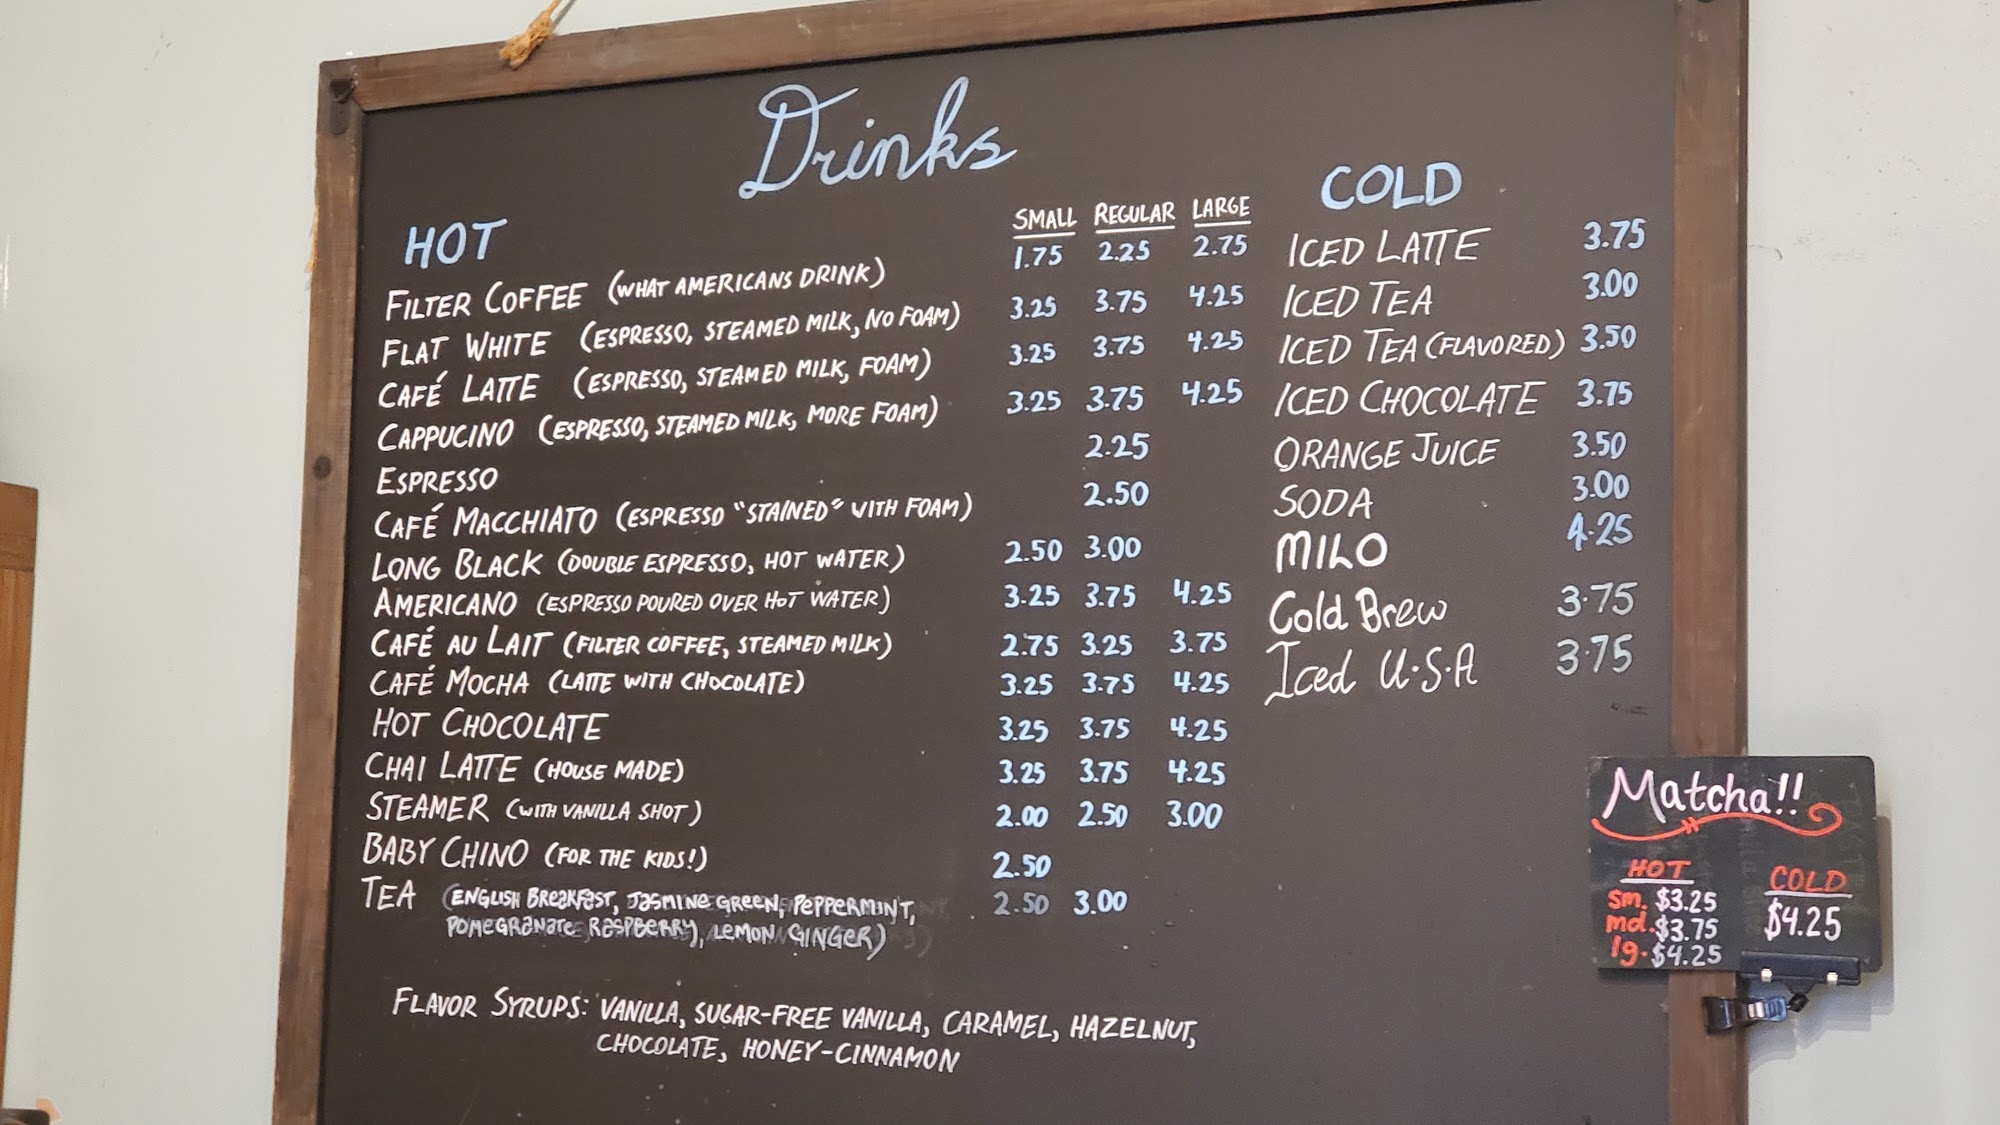 Drinks
HOT
SMALL REGULAR LARGE
FILTER COFFEE (WHAT AMERICANS DRINK) 1.75 2.25 2.75
FLAT WHITE (ESPRESSO, STEAMED MILK, NO FOAM) 3.25 3.75 4.25
CAFÉ LATTE (ESPRESSO, STEAMED MILK, FOAM) 3.25 3.75 4.25
CAPPUCINO (ESPRESSO, STEAMED MILK, MORE FOAM) 3.25 3.75 4.25
ESPRESSO 2.25
CAFÉ MACCHIATO (ESPRESSO "STAINED" WITH FOAM) 2.50
LONG BLACK (DOUBLE ESPRESSO, HOT WATER) 2.50 3.00
AMERICANO (ESPRESSO POURED OVER HOT WATER) 3.25 3.75 4.25
CAFÉ AU LAIT (FILTER COFFEE, STEAMED MILK) 2.75 3.25 3.75
CAFÉ MOCHA (LATTE WITH CHOCOLATE) 3.25 3.75 4.25
HOT CHOCOLATE 3.25 3.75 4.25
CHAI LATTE (HOUSE MADE) 3.25 3.75 4.25
STEAMER (WITH VANILLA SHOT) 2.00 2.50 3.00
BABY CHINO (FOR THE KIDS!) 2.50
TEA (ENGLISH BREAKFAST, JASMINE GREEN, PEPPERMINT, 2.50 3.00
POMEGRANATE RASPBERRY, LEMON GINGER)
FLAVOR SYRUPS: VANILLA, SUGAR-FREE VANILLA, CARAMEL, HAZELNUT,
CHOCOLATE, HONEY-CINNAMON
COLD
ICED LATTE 3.75
ICED TEA 3.00
ICED TEA (FLAVORED) 3.50
ICED CHOCOLATE 3.75
ORANGE JUICE 3.50
SODA 3.00
MILO 4.25
Cold Brew 3.75
Iced U.S.A 3.75
Matcha!!
HOT
sm. $3.25
md. $3.75
lg. $4.25
COLD
$4.25